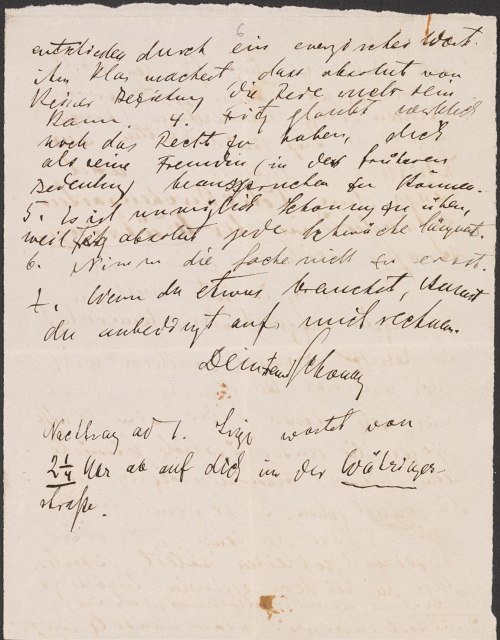 6
entschieden durch ein energisches Wort.
ihm klar machest, dass absolut von
keiner Beziehung die Rede mehr sein
kann. 4. Fritz glaubt wirklich
noch das Recht zu haben, dich
als seine Freundin (in der früheren
Bedeutung beanspruchen zu können.
5. Es ist unmöglich Schonung zu üben,
weil Fritz absolut jede Schwäche
6. Nimm die Sache nicht zu ernst.
7. Wenn du etwas brauchst, kannst
du unbedingt auf mich rechnen.
Dein
Nachtrag ad 1. wartet von
2 1/4 Uhr ab auf dich in der Währinger-
straße.